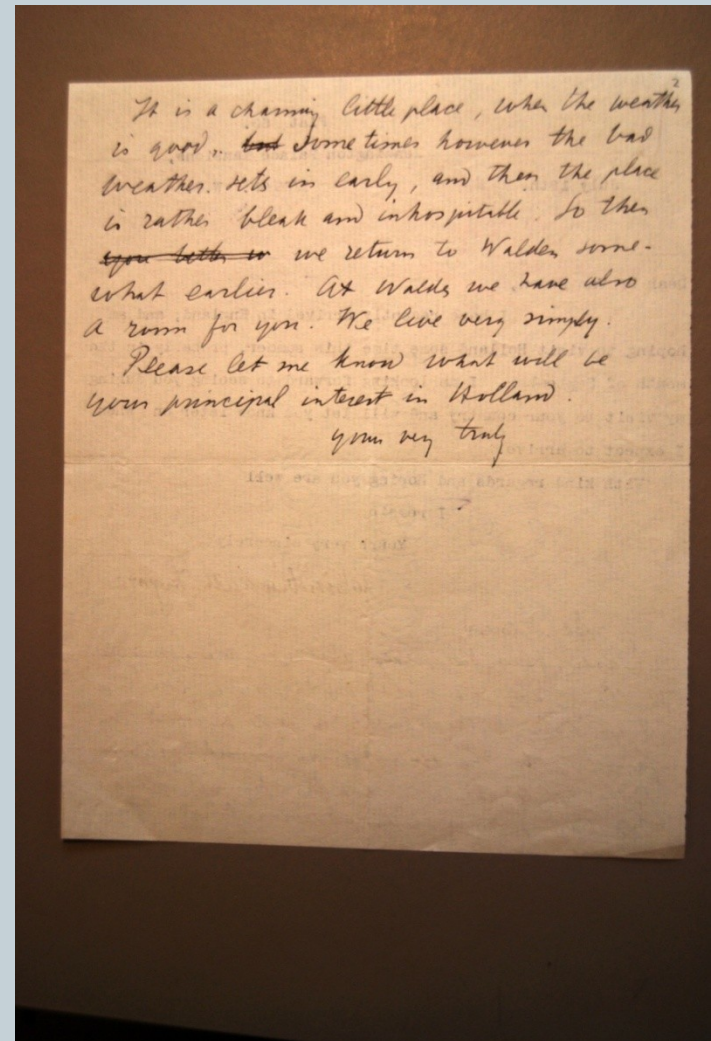 2
It is a charming little place, when the weather
is good. but Sometimes however the bad
weather sets in early, and then the place
is rather bleak and inhospitable. So then
we return to Walden some-
what earlier. At Walden we have also
a room for you. We live very simply.
Please let me know what will be
your principal interest in Holland.
yours very truly